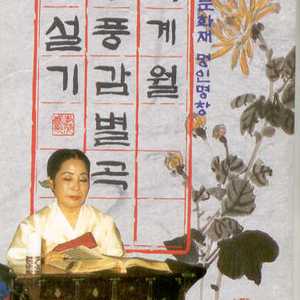 문화재 명인명창
계월
풍감별곡
설기